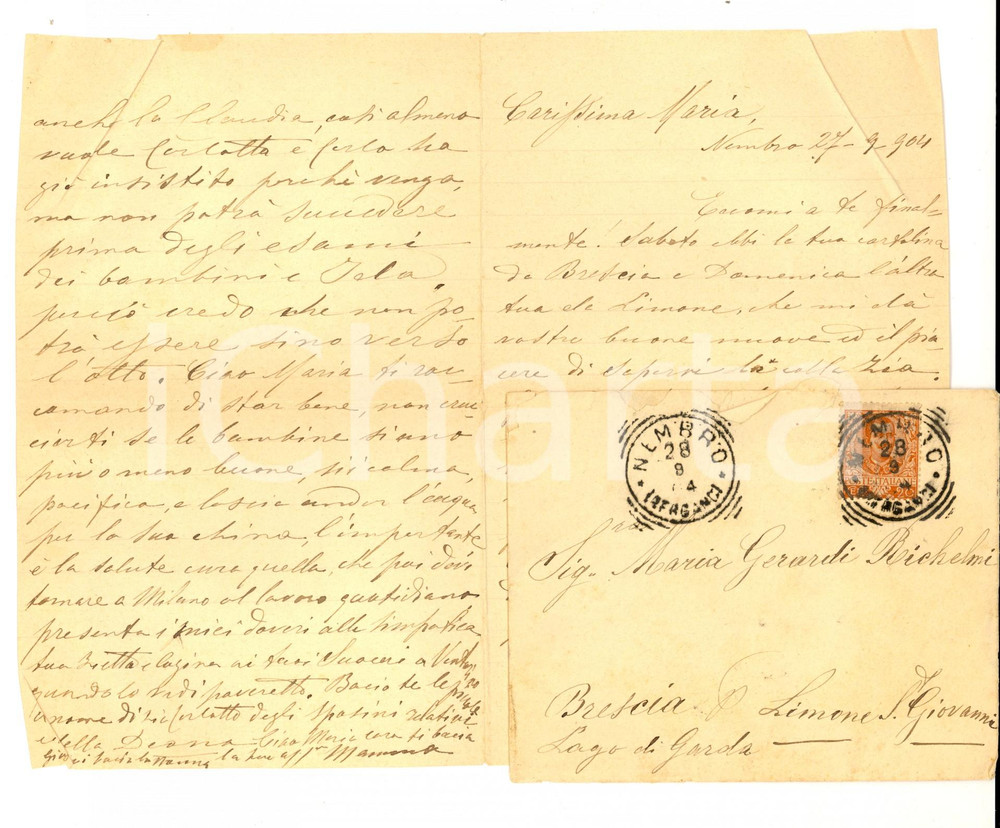 Carissima Maria,
Nembro 27-9-904
Eccomi a te final-
mente! Sabato ebbi la tua cartolina
da Brescia e Domenica l'altra
tua da Limone, che mi dà
vostre buone nuove ed il pia-
cere di sapervi là colla Zia.
anche la Claudia, così almeno
vuole Carlotta e Carlo ha
già insistito perchè venga,
ma non potrà succedere
prima degli esami
dei bambini e
perciò credo che non po-
trà essere sino verso
l'otto. Ciao Maria ti rac-
comando di star bene, non cruc-
ciarti se le bambine siano
più o meno buone, sii calma,
pacifica, e lascia andar l'acqua
per la sua china, l'importante
è la salute cura quella, che poi devi
tornare a Milano al lavoro quotidiano
presenta i miei doveri alla simpatica
tua Zietta e cugina ai tuoi Suoceri a
quando lo vedi poveretto. Bacio te le
a nome di Carlotta degli sposini
e della Ciao Maria cara ti bacia
la tua aff Mamma
NEMBRO
28
9
04
(BERGAMO)
NEMBRO
28
9
4
(BERGAMO)
Sig. Maria Gerardi Richelmi
Brescia P. Limone S. Giovanni
Lago di Garda
iCharta